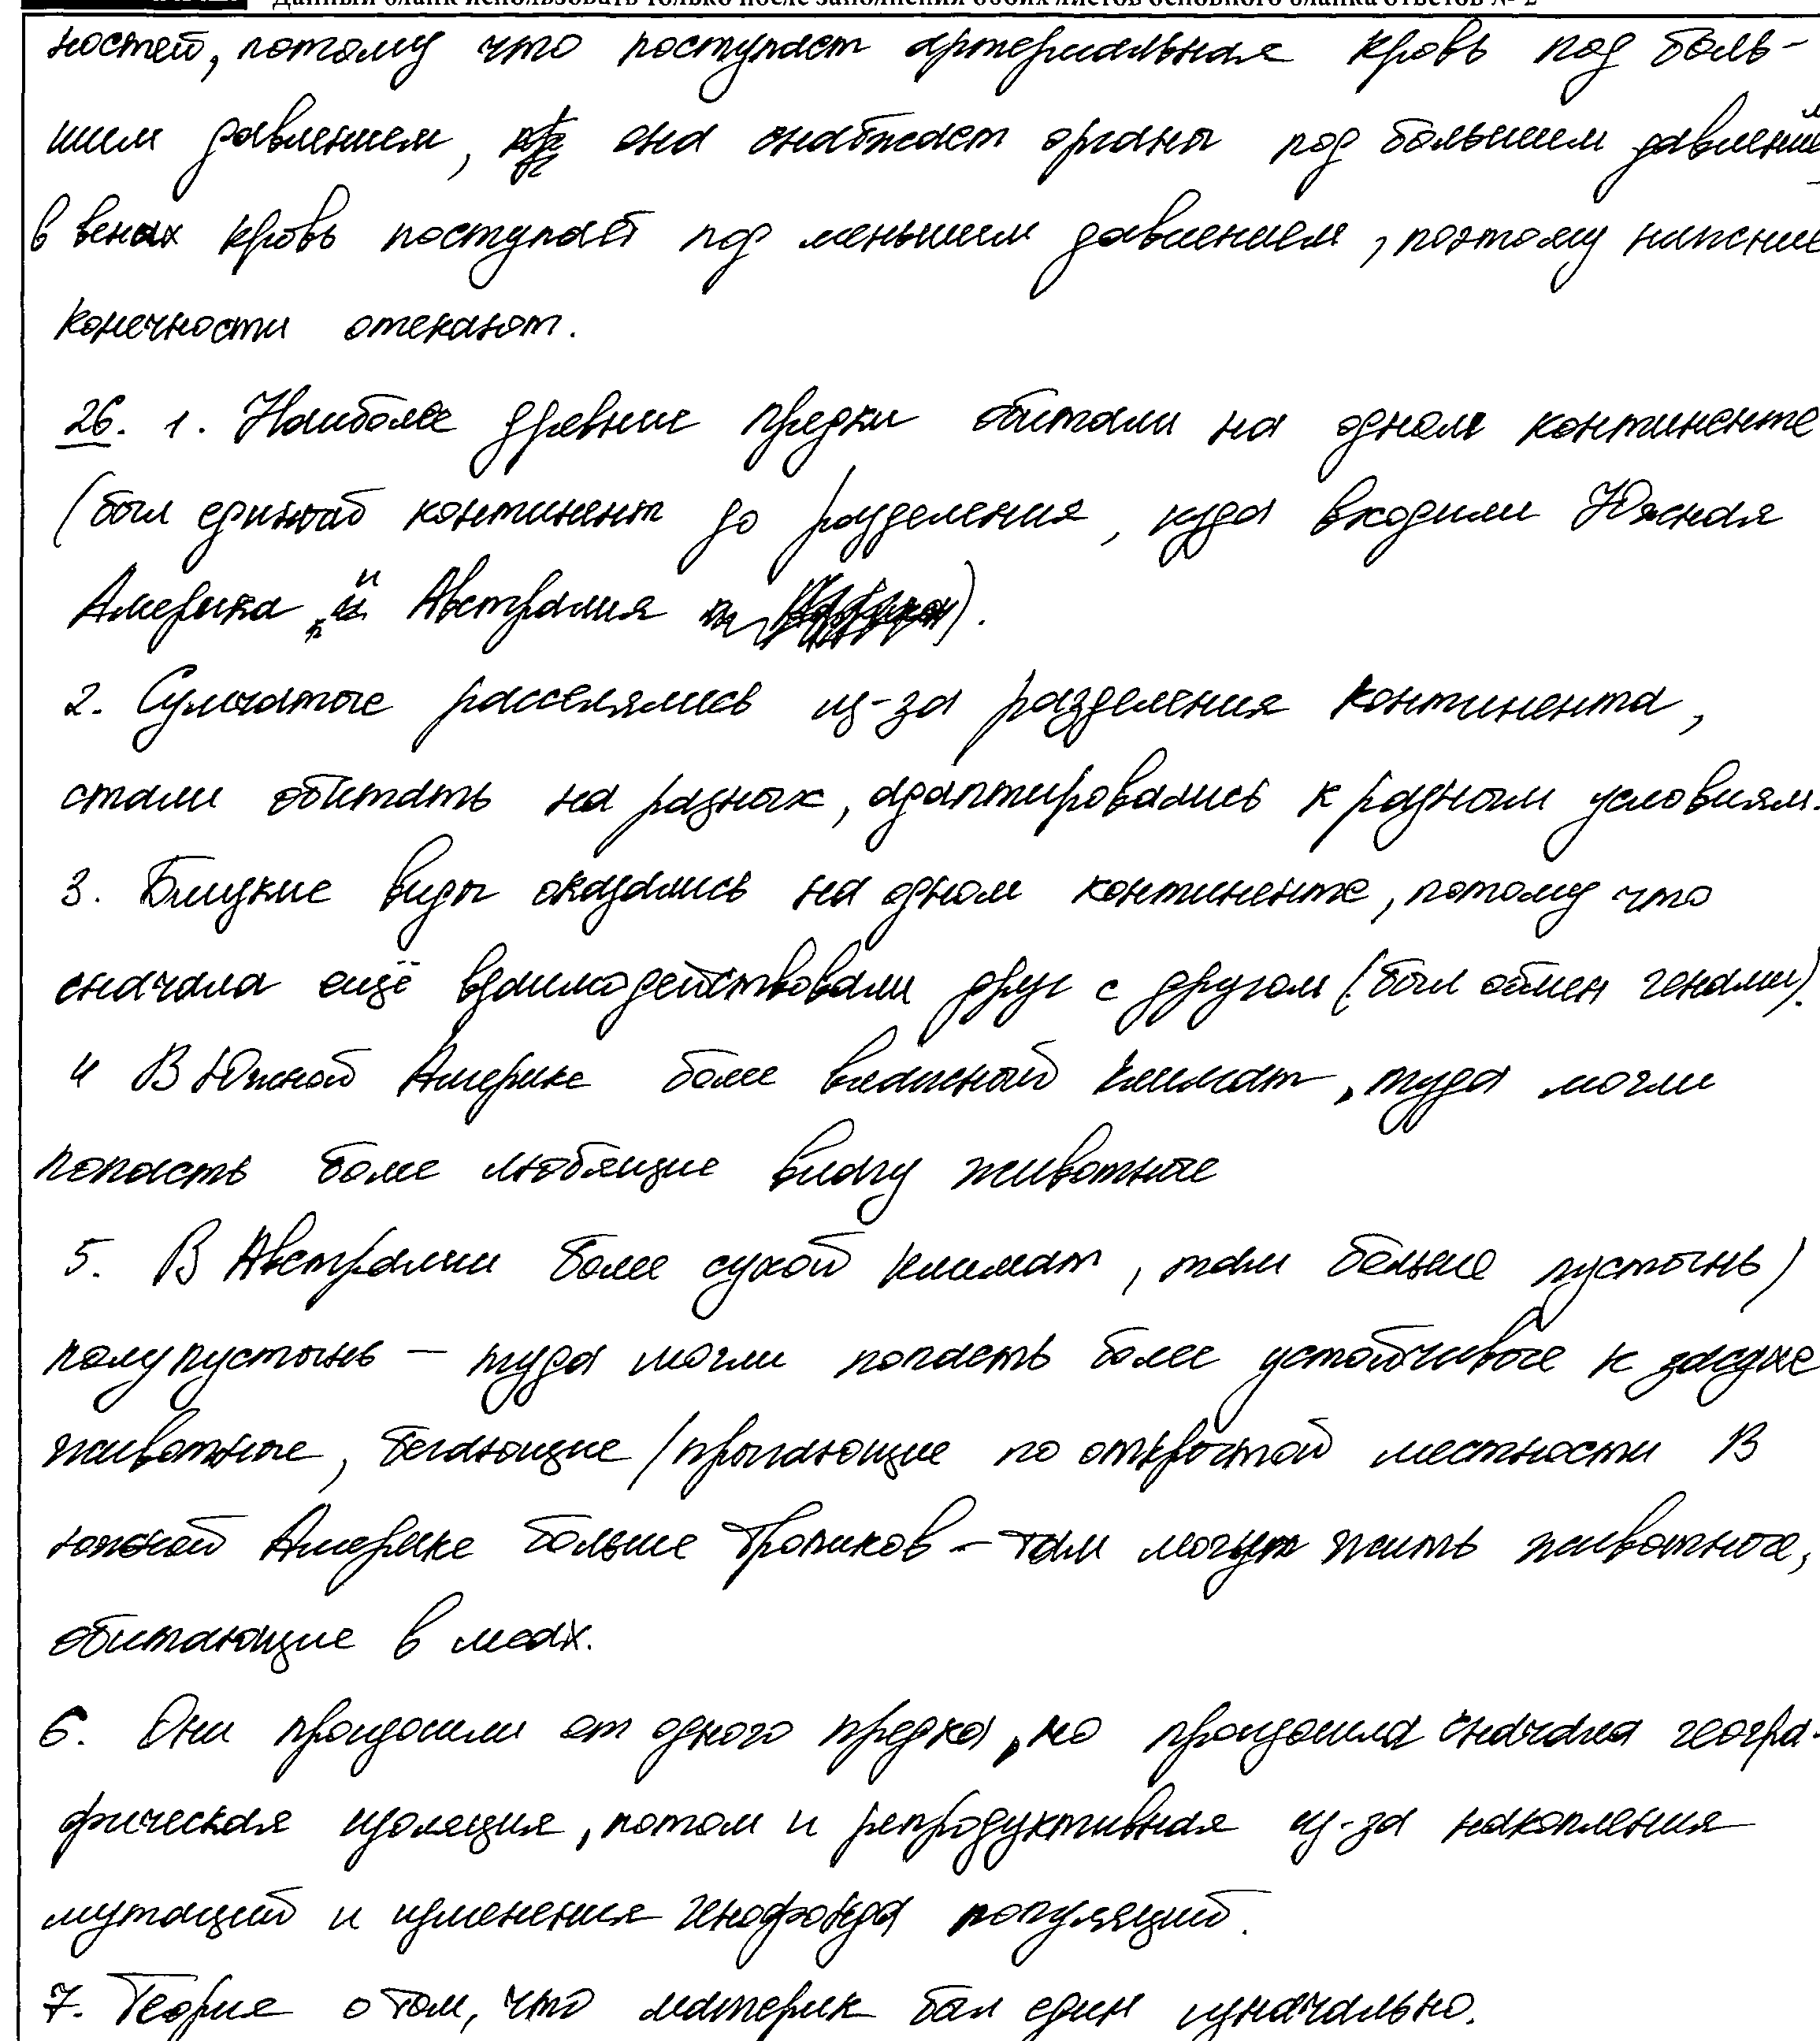 Данный бланк использовать только после заполнения обоих листов основного бланка ответов № 2
ностей, потому что поступает артериальная кровь под боль-
шим давлением, она снабжает органы под большим давлением
в венах кровь поступает под меньшим давлением, поэтому нижние
конечности отекают.
26. 1. Наиболее древние предки обитали на одном континенте
(был единый континент до разделения, куда входили Южная
Америка и Австралия).
2. Сумчатые расселялись из-за разделения континента,
стали обитать на разных, адаптировались к разным условиям.
3. Близкие виды оказались на одном континенте, потому что
сначала ещё взаимодействовали друг с другом (был обмен генами).
4 В Южной Америке более влажный климат, туда могли
попасть более любящие влагу животные
5. В Австралии более сухой климат, там больше пустынь)
полупустынь – туда могли попасть более устойчивые к засухе
животные, бегающие/прыгающие по открытой местности В
южной Америке больше тропиков – там могут жить животные,
обитающие в лесах.
6. Они произошли от одного предка, но произошла сначала геогра-
фическая изоляция, потом и репродуктивная из-за накопления
мутаций и изменения генофонда популяций.
7. Теория о том, что материк был един изначально.